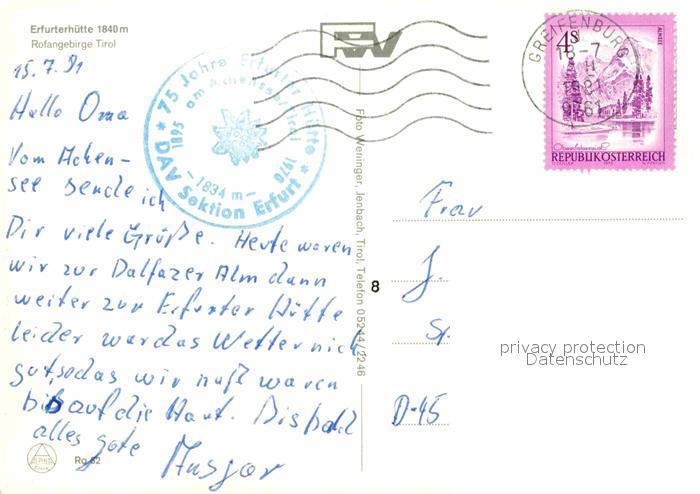 Erfurterhütte 1840 m
Rofangebirge Tirol
15.7.81
Hallo Oma
Vom Achen-
see sende ich
Dir viele Grüße. Heute waren
wir zur Dalfazer Alm dann
weiter zur Erfurter Hütte
leider war das Wetter nicht
gut, sodas wir naß waren
bis auf die Haut. Bis bald
alles gute
Ansgar
Rg 62
75 Jahre Erfurter Hütte
am Achensee/Tirol
1895
1970
- 1834 m -
* DAV Sektion Erfurt *
Foto Weninger, Jenbach, Tirol, Telefon 05244/2246
8
GREIFENBURG
16-7
1981
9761
4 S
ALMSEE
REPUBLIK ÖSTERREICH
Frau
J.
D-45
privacy protection
Datenschutz